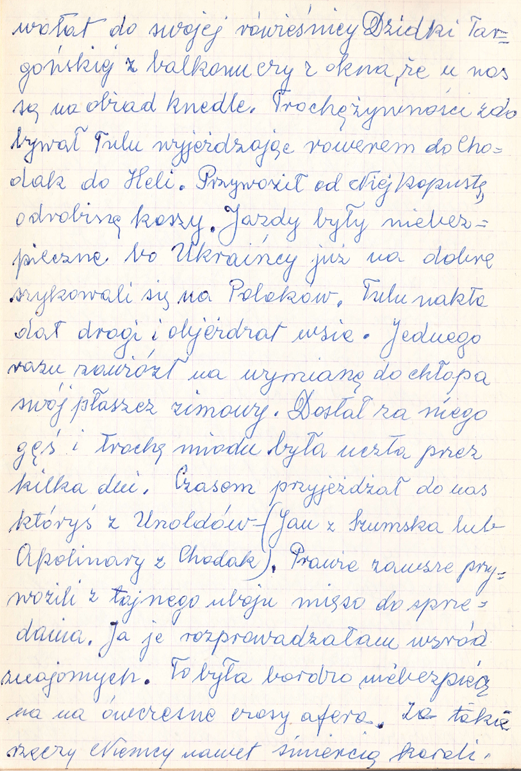 wołał do swojej rówieśnicy Dzidki Tar=
gońskiej z balkonu czy z okna, że u nas
są na obiad knedle. Trochę żywności zdo
bywał Tulu wyjeżdzając rowerem do Cho=
dak do Heli. Przywoził od Niej kapustę,
odrobinę kaszy. Jazdy były niebez=
pieczne bo Ukraińcy już na dobre
szykowali się na Polaków. Tulu nakła
dał drogi i objeżdżał wsie. Jednego
razu zawiózł na wymianę do chłopa
swój płaszcz zimowy. Dostał za niego
gęś i trochę miodu była uczta przez
kilka dni. Czasem przyjeżdżał do nas
któryś z Unoldów (Jan z Szumska lub
Apolinary z Chodak). Prawie zawsze przy=
wozili z tajnego uboju mięso do sprze=
dania. Ja je rozprowadzałam wśród
znajomych. To była bardzo niebezpiecz
na na ówczesne czasy afera. Za takie
rzeczy Niemcy nawet śmiercią karali.